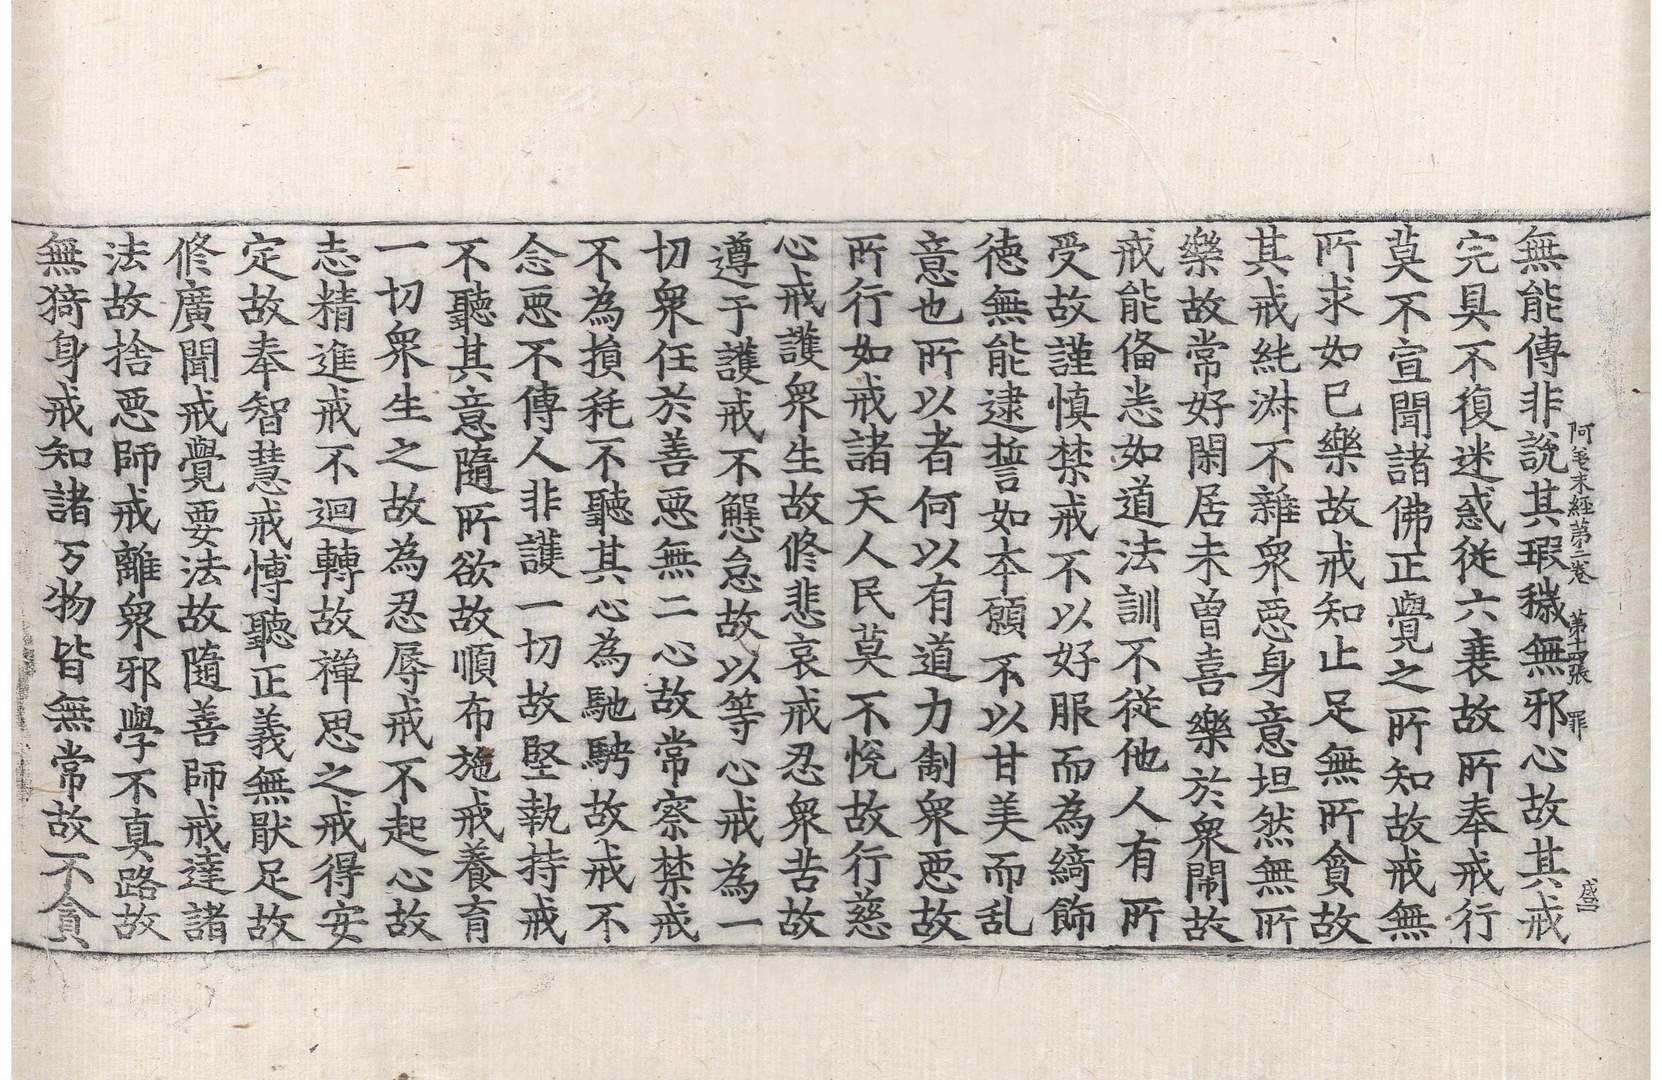 阿差末經第二卷　第十四張　罪
無能傳非說其瑕穢無邪心故其戒
完具不復迷惑從六衰故所奉戒行
莫不宣聞諸佛正覺之所知故戒無
所求如已樂故戒知止足無所貪故
其戒純淑不雜衆惡身意坦然無所
樂故常好閑居未曾喜樂於衆閙故
戒能俻悉如道法訓不從他人有所
受故謹慎禁戒不以好服而為綺飾
德無能逮誓如本願不以甘美而乱
意也所以者何以有道力制衆惡故
所行如戒諸天人民莫不悅故行慈
心戒護衆生故修悲哀戒忍衆苦故
遵于護戒不懈怠故以等心戒為一
切衆任於善惡無二心故常察禁戒
不為損秏不聽其心為馳騁故戒不
念惡不傳人非護一切故堅執持戒
不聽其意隨所欲故順布施戒養育
一切衆生之故為忍辱戒不起心故
志精進戒不迴轉故禪思之戒得安
定故奉智慧戒博聽正義無猒足故
修廣聞戒覺要法故隨善師戒達諸
法故捨惡師戒離衆邪學不真路故
無猗身戒知諸万物皆無常故不貪